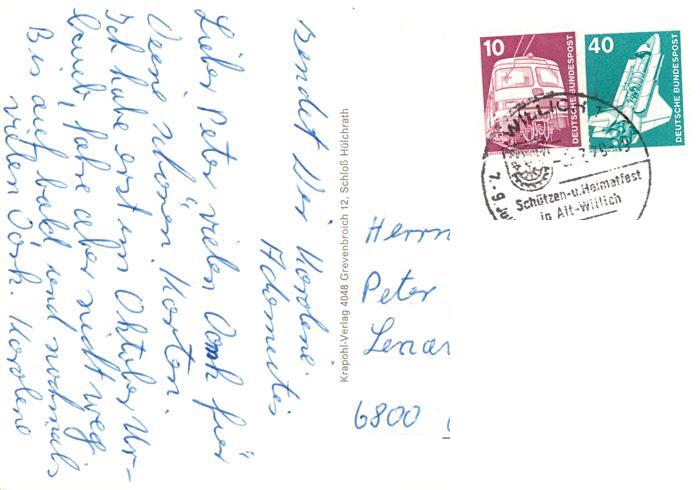 Lieber Peter vielen Dank für
Deine schönen Karten.
Ich habe erst im Oktober Ur-
laub, fahre aber nicht weg
Bis auf bald und nochmals
vielen Dank. Marlene
sendet Dir Marlene
Krapohl-Verlag 4048 Grevenbroich 12, Schloß Hülchrath
10
DEUTSCHE BUNDESPOST
40
DEUTSCHE BUNDESPOST
WILLICH 1
Schützen-u.Heimatfest
in Alt-Willich
Herrn
Peter
6800